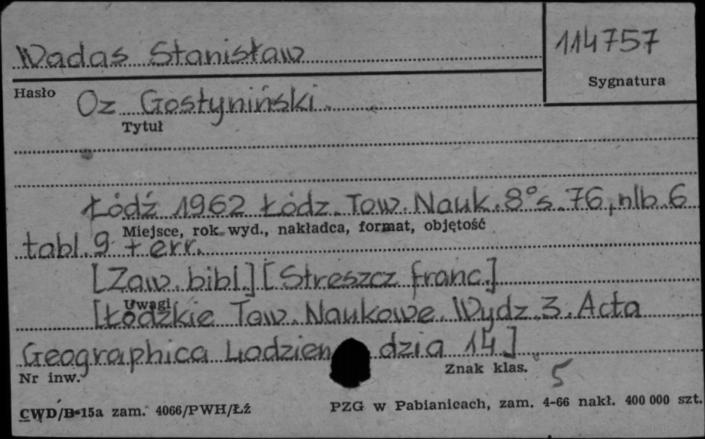 Wadas Stanisław
114757
Hasło
Sygnatura
Oz Gostyniński.
Tytuł
Łódź 1962 Łódz. Tow. Nauk. 8° s. 76, nlb 6
Miejsce, rok wyd., nakładca, format, objętość
tabl. 9 + err.
[Zaw. bibl.] [Streszcz franc.]
Uwagi
[Łódzkie Tow. Naukowe. Wydz. 3. Acta
Geographica Lodzien dzia 14]
Nr inw.
Znak klas. 5
CWD/B-15a zam. 4066/PWH/Łź
PZG w Pabianicach, zam. 4-66 nakł. 400 000 szt.